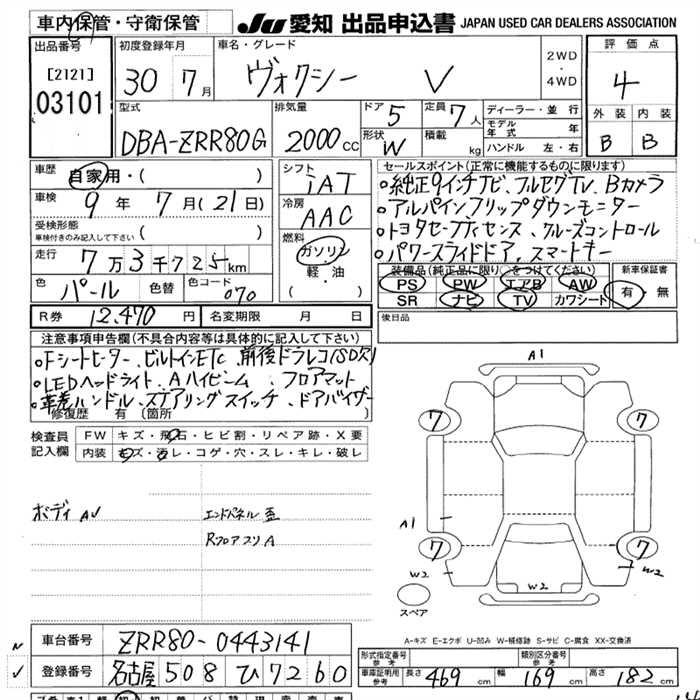 車内保管・守衛保管
JU 愛知 出品申込書 JAPAN USED CAR DEALERS ASSOCIATION
出品番号
[2121]
03101
初度登録年月
30 7月
車名・グレード
ヴォクシー V
2WD
・
4WD
評価点
4
外装 内装
B B
型式
DBA-ZRR80G
排気量
2000cc
ドア 5
定員 7人
形状 W
積載 kg
ディーラー・並行
モデル年式 年
ハンドル 左・右
車歴
自家用・( )
車検
9年 7月(21日)
受検形態
車検付きのみ記入して下さい ( )
走行
7万3千725km
色 パール 色替 色コード 070
R券 12,470円 名変期限 月 日
シフト
IAT
冷房
AAC
燃料
ガソリン
軽・油
( )
セールスポイント(正常に機能するものに限ります)
○純正9インチナビ、フルセグTV、Bカメラ
○アルパインフリップダウンモニター
○トヨタセーフティセンス、クルーズコントロール
○パワースライドドア、スマートキー
装備品(純正品に限り○をつけてください)
PS PW エアB AW
SR ナビ TV カワシート
新車保証書
有・無
後日品
注意事項申告欄(不具合内容等は具体的に記入して下さい)
○Fシートヒーター、ビルトインETC、前後ドラレコ(SD欠)
○LEDヘッドライト、Aハイビーム、フロアマット
○革巻ハンドル、ステアリングスイッチ、ドアバイザー
修復歴 有 〔箇所 〕
検査員記入欄
FW キズ・飛石・ヒビ割・リペア跡・X要
内装 キズ・汚レ・コゲ・穴・スレ・キレ・破レ
ボディ AU
エンドパネル歪
Rフロアフリ A
A1
7 7
A1
7 7
W2 W2 W2
スペア
A-キズ E-エクボ U-凹み W-補修跡 S-サビ C-腐食 XX-交換済
車台番号 ZRR80-0443141
登録番号 名古屋 508 ひ 7260
形式指定番号 参考
類別区分番号 参考
車庫証明用 参考
長さ 469 cm 幅 169 cm 高さ 182 cm